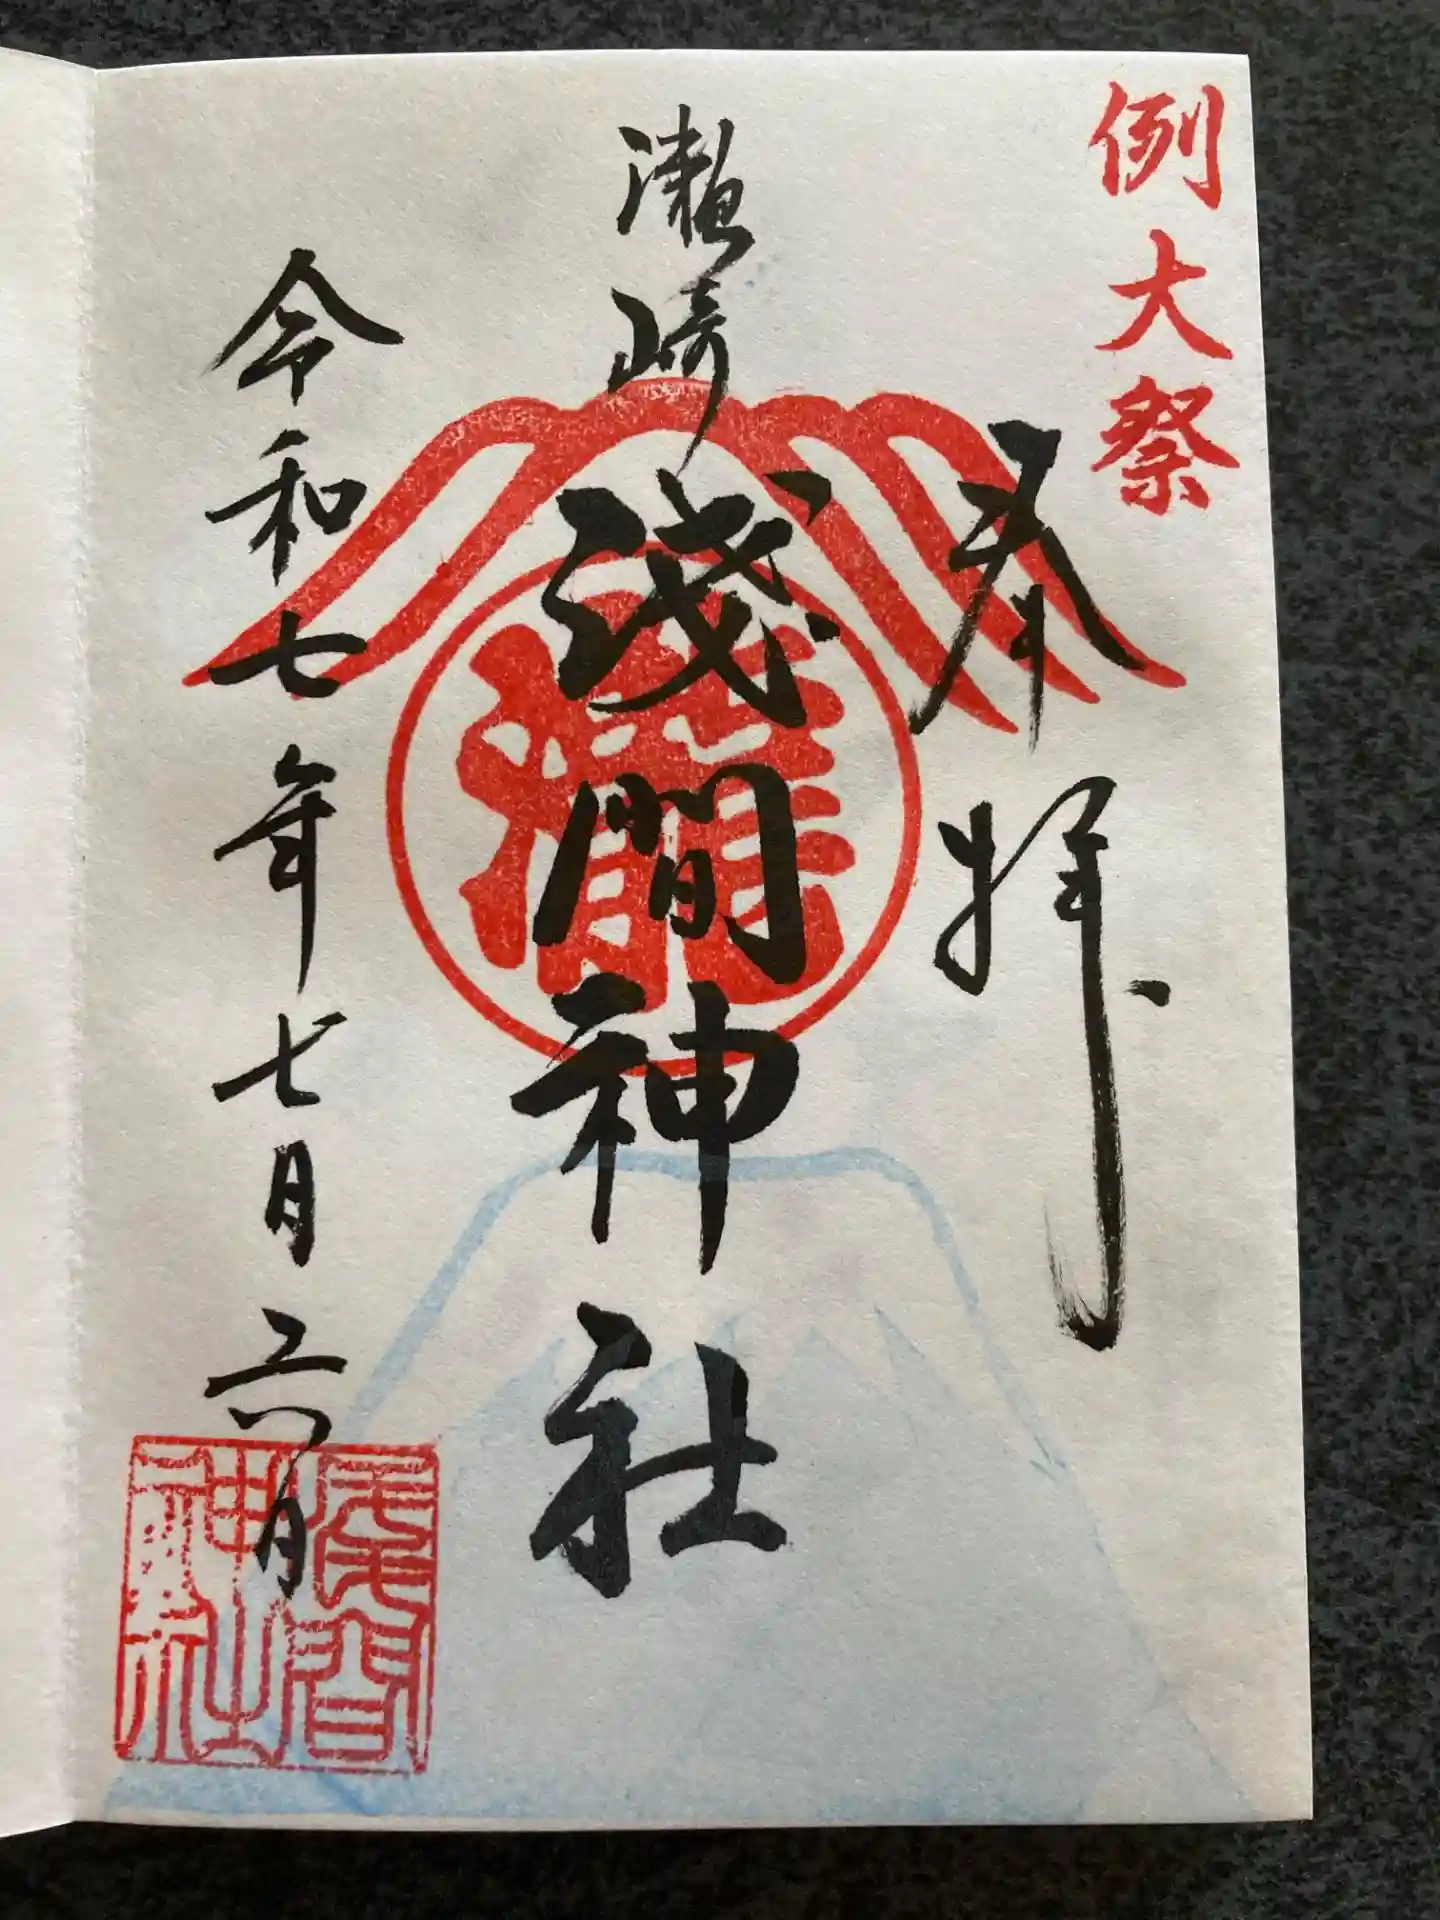 例大祭
奉拝
瀬崎
浅間神社
令和七年七月六日
淺間
神社